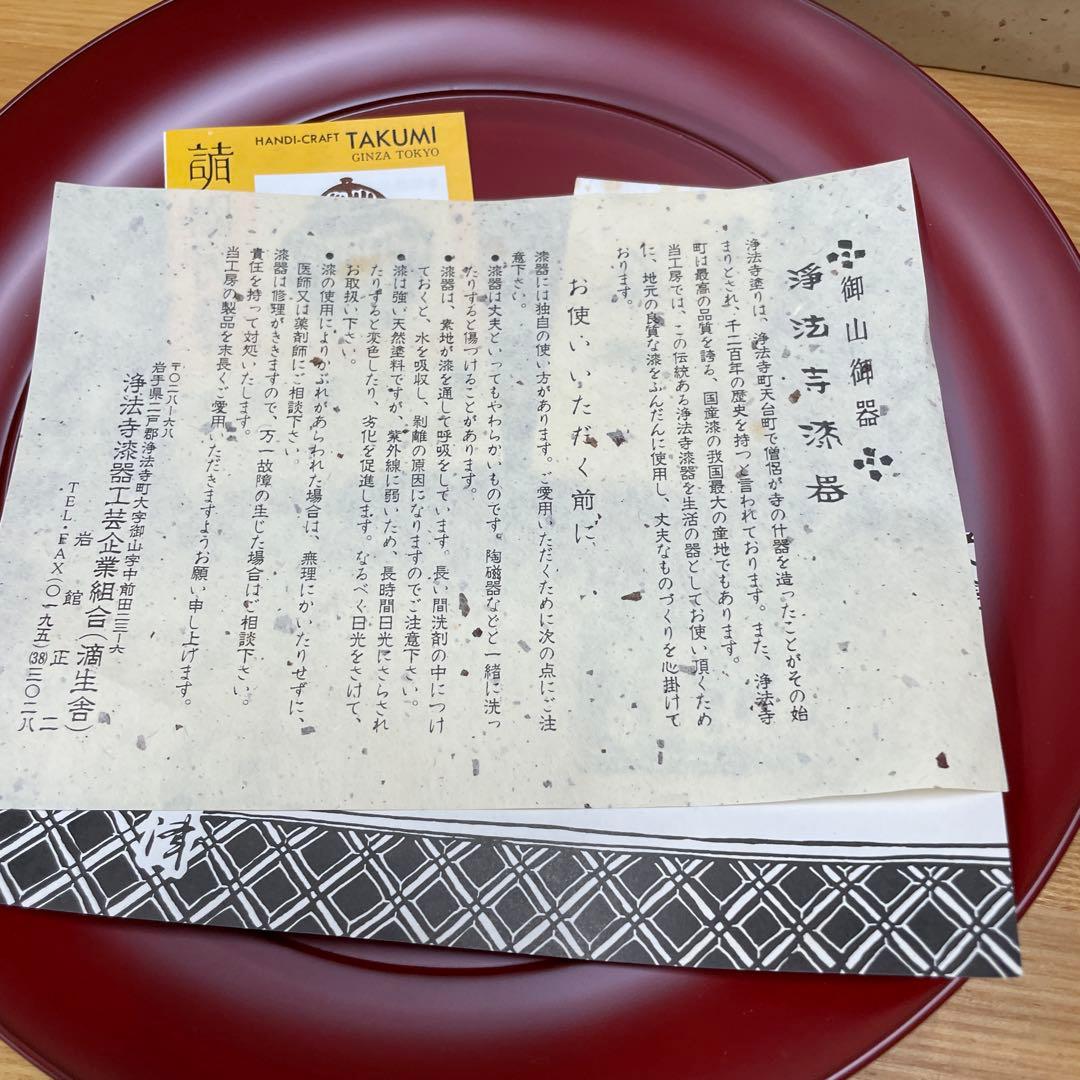 HANDI-CRAFT TAKUMI
GINZA TOKYO
御山御器
浄法寺漆器
浄法寺塗りは、浄法寺町天台町で僧侶が寺の什器を造ったことがその始
まりとされ、千二百年の歴史を持つと言われております。また、浄法寺
町は最高の品質を誇る、国産漆の我国最大の産地でもあります。
当工房では、この伝統ある浄法寺漆器を生活の器としてお使い頂くため
に、地元の良質な漆をふんだんに使用し、丈夫なものづくりを心掛けて
おります。
お使いいただく前に
漆器には独自の使い方があります。ご愛用いただくために次の点にご注
意下さい。
●漆器は丈夫といってもやわらかいものです。陶磁器などと一緒に洗っ
たりすると傷つけることがあります。
●漆器は、素地が漆を通して呼吸をしています。長い間洗剤の中につけ
ておくと、水を吸収し、剥離の原因になりますのでご注意下さい。
●漆は強い天然塗料ですが、紫外線に弱いため、長時間日光にさらされ
たりすると変色したり、劣化を促進します。なるべく日光をさけて、
お取扱い下さい。
●漆の使用によりかぶれがあらわれた場合は、無理にかいたりせずに、
医師又は薬剤師にご相談下さい。
漆器は修理がききますので、万一故障の生じた場合はご相談下さい。
責任を持って対処いたします。
当工房の製品を末長くご愛用いただきますようお願い申し上げます。
〒〇二八ー六八
岩手県二戸郡浄法寺町大字御山字中前田二三ー六
浄法寺漆器工芸企業組合(滴生舎)
岩舘正二
TEL・FAX(〇一九五)(38)二〇二八